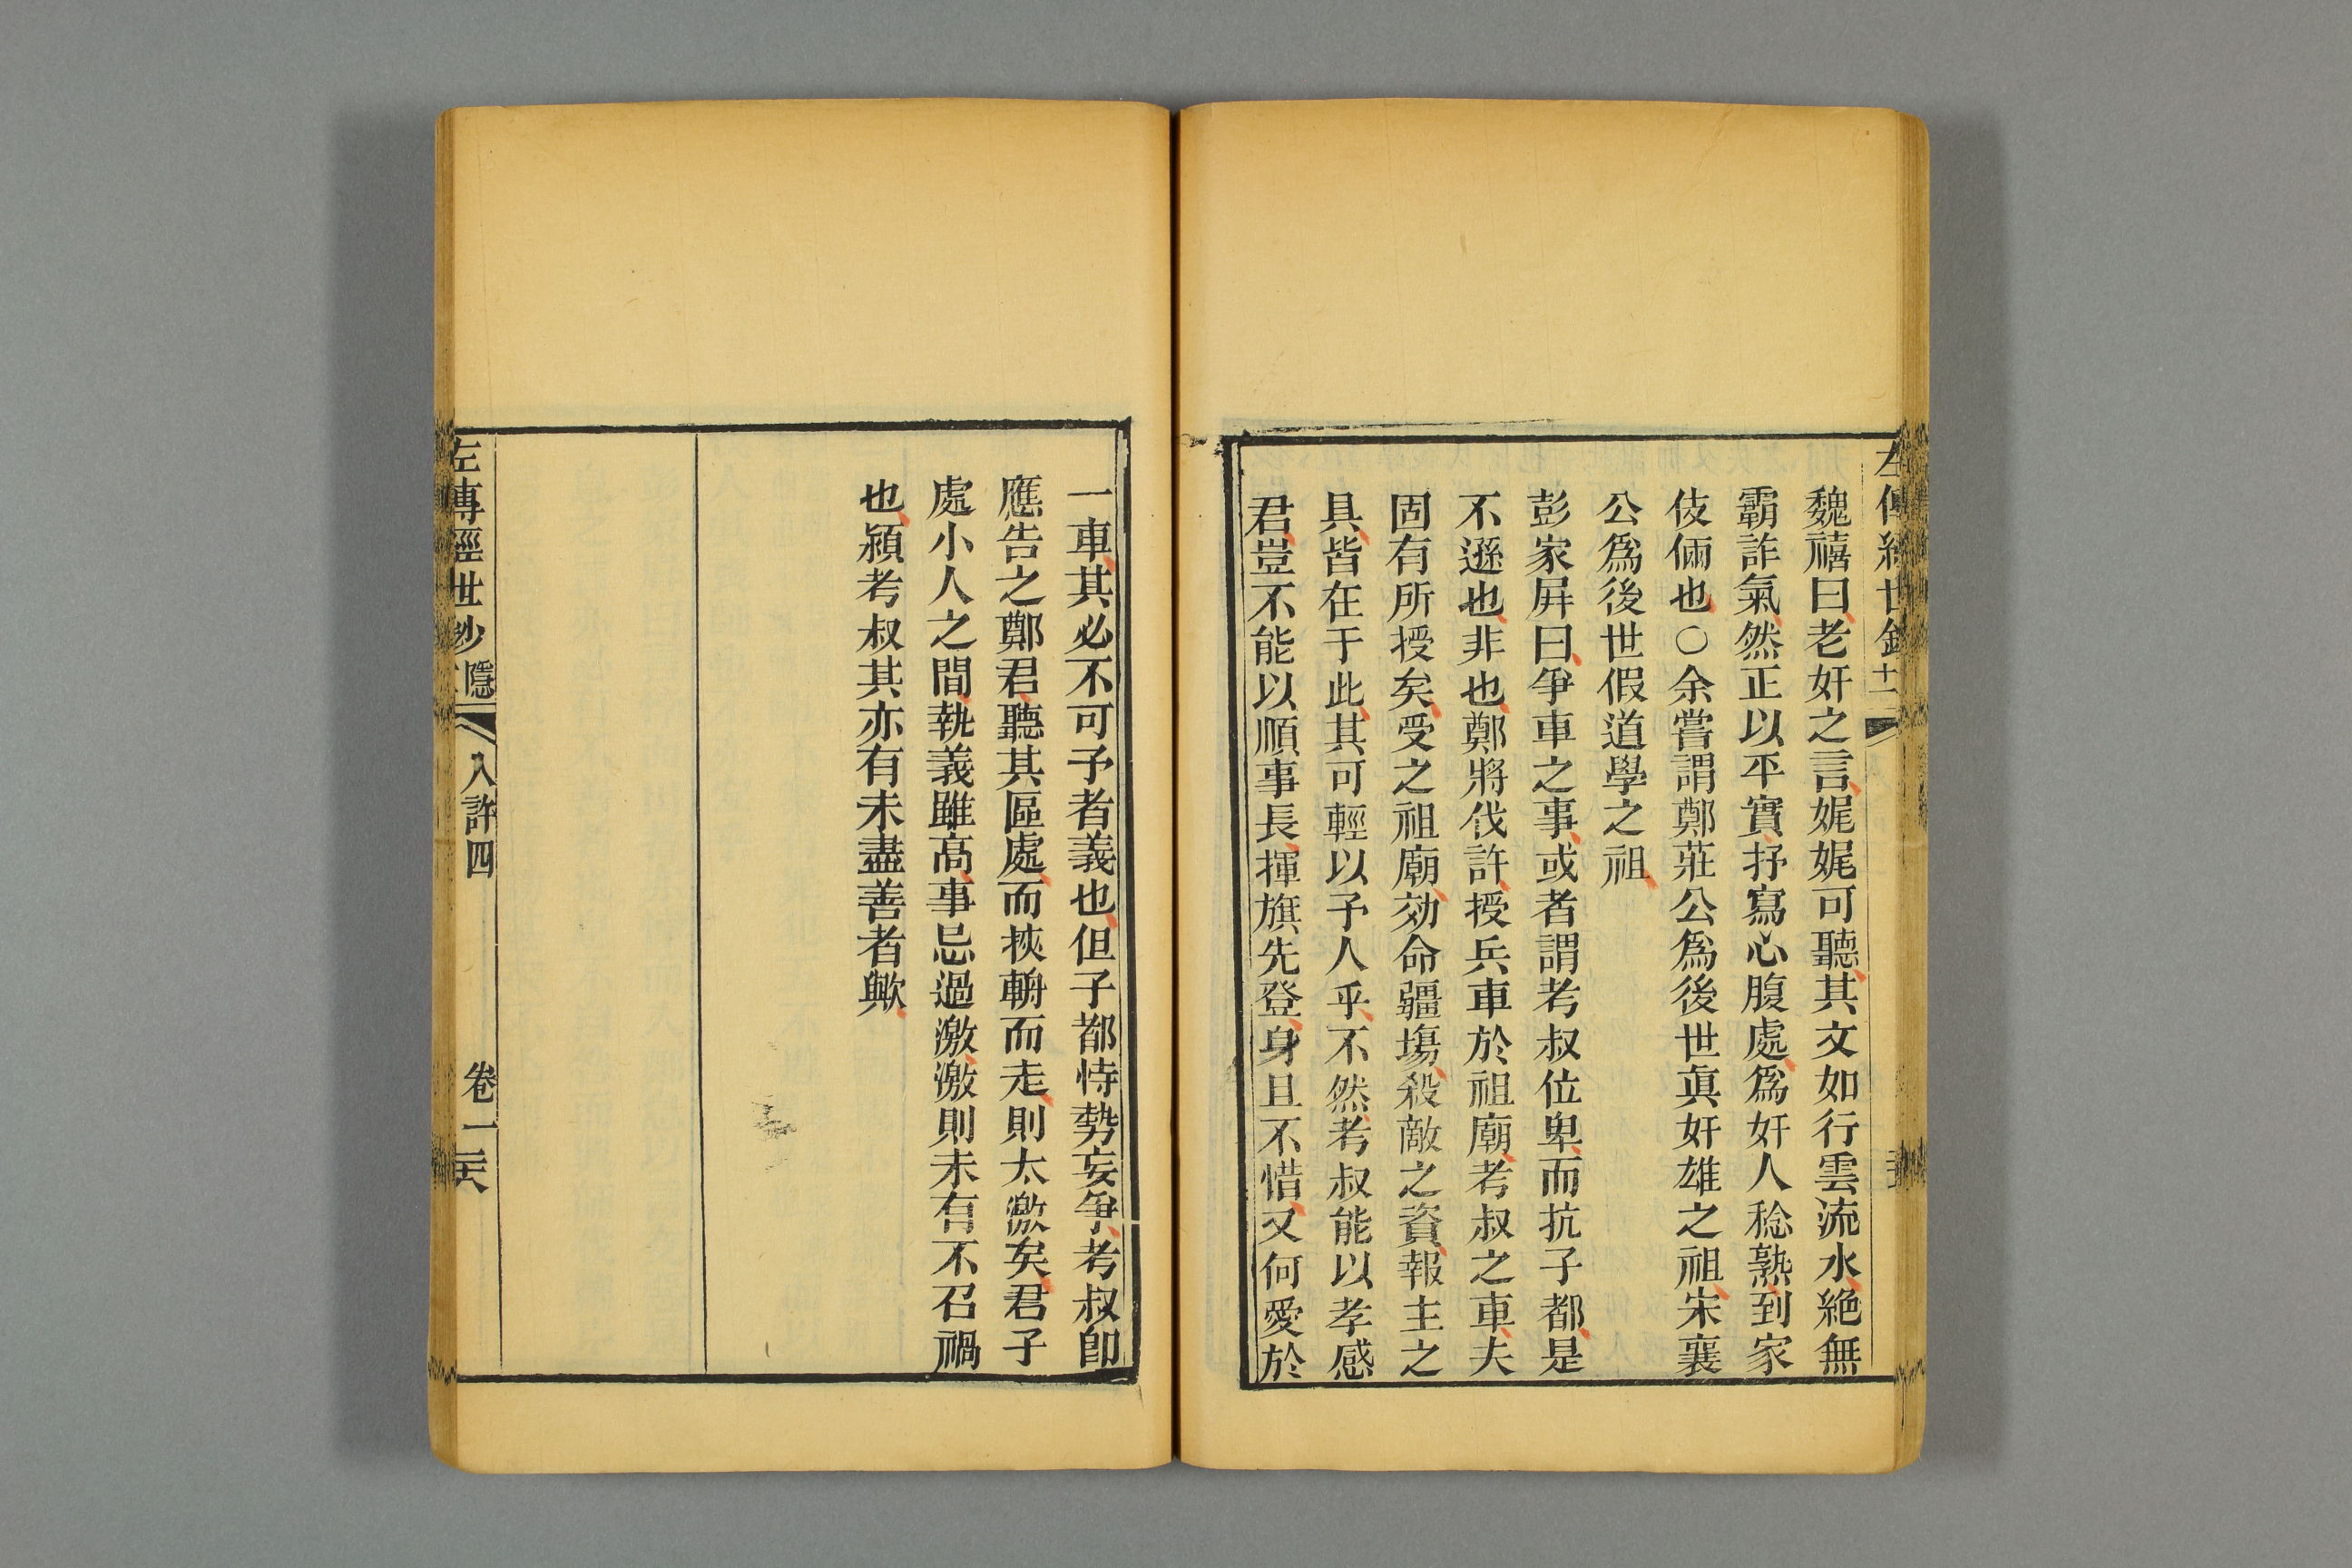 魏禧曰老奸之言娓娓可聽其文如行雲流水絶無
霸詐氣然正以平實抒寫心腹處爲奸人稔熟到家
伎倆也○余嘗謂鄭莊公爲後世眞奸雄之祖宋襄
公爲後世假道學之祖
彭家屏曰爭車之事或者謂考叔位卑而抗子都是
不遜也非也鄭將伐許授兵車於祖廟考叔之車夫
固有所授矣受之祖廟効命疆塲殺敵之資報主之
具皆在于此其可輕以予人乎不然考叔能以孝感
君豈不能以順事長揮旗先登身且不惜又何愛於
一車其必不可予者義也但子都恃勢妄爭考叔卽
應告之鄭君聽其區處而挾輈而走則太激矣君子
處小人之間執義雖高事忌過激激則未有不召禍
也潁考叔其亦有未盡善者歟
左傳經世鈔
隱
入許四
卷一